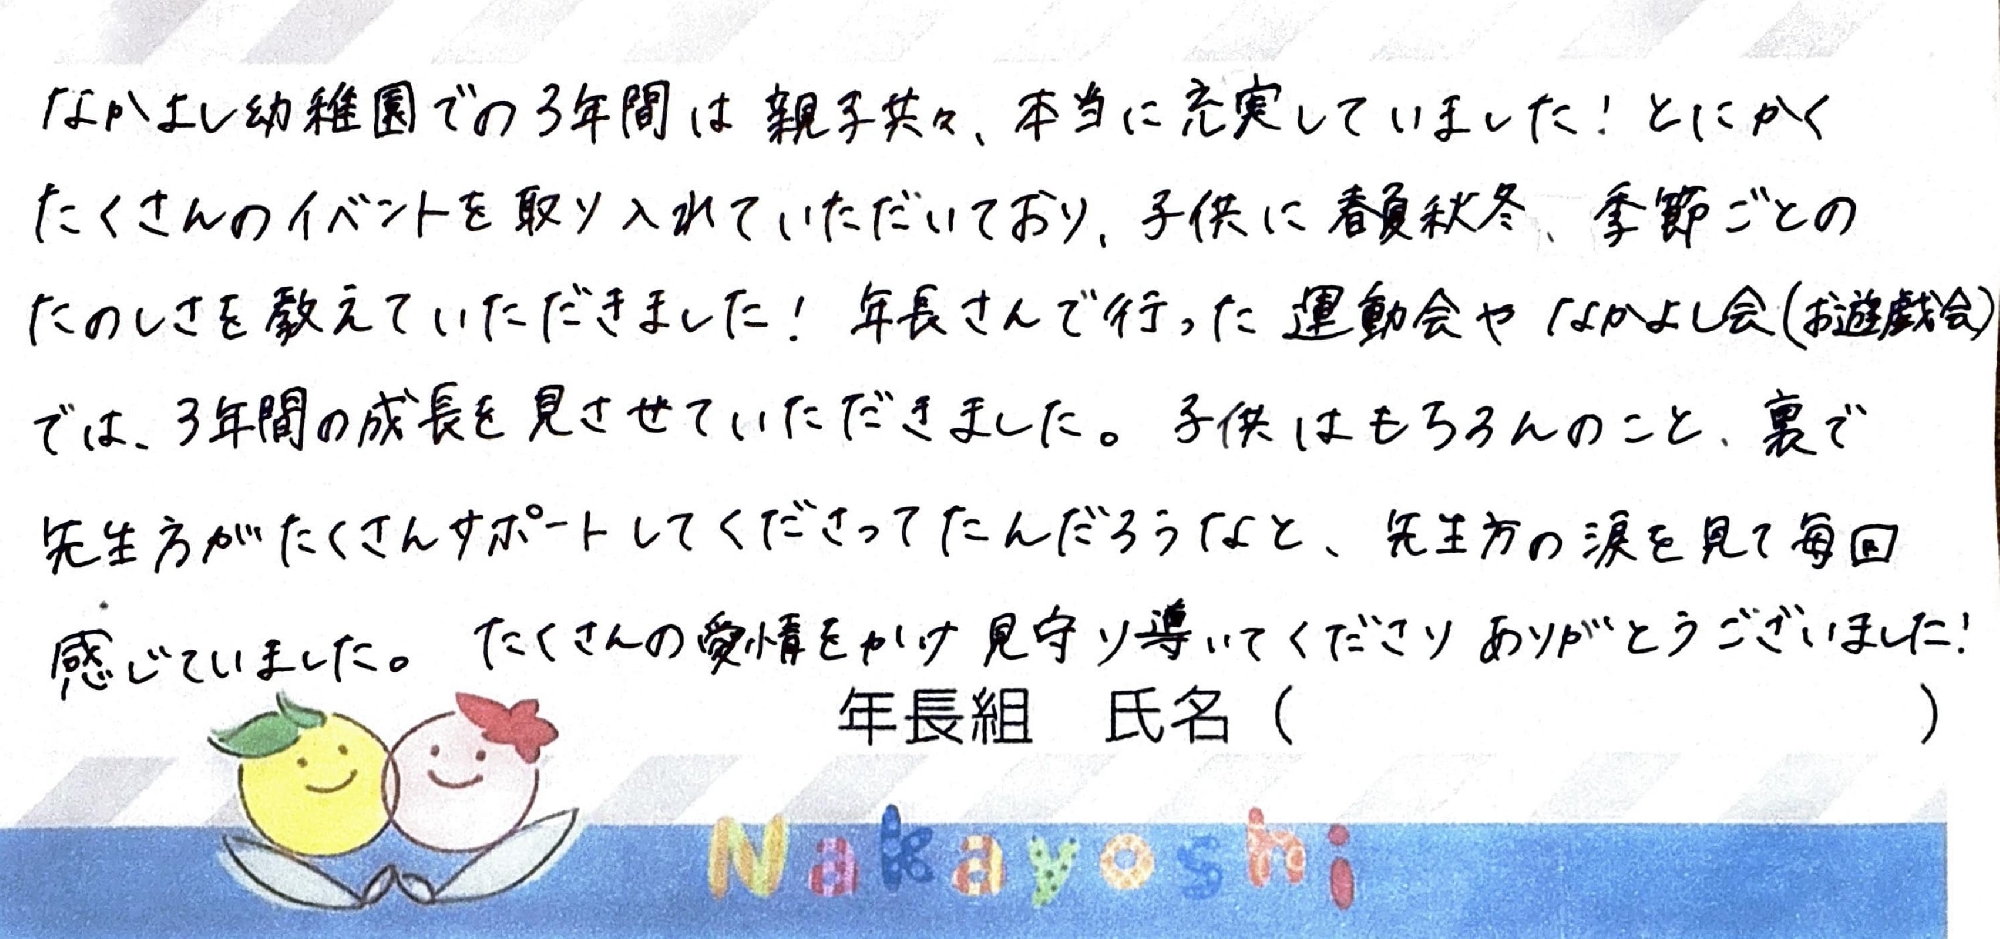 なかよし幼稚園での3年間は親子共々、本当に充実していました！とにかく
たくさんのイベントを取り入れていただいており、子供に春夏秋冬、季節ごとの
たのしさを教えていただきました！年長さんで行った運動会やなかよし会(お遊戯会)
では、3年間の成長を見させていただきました。子供はもちろんのこと、裏で
先生方がたくさんサポートしてくださってたんだろうなと、先生方の涙を見て毎回
感じていました。たくさんの愛情をかけ見守り導いてくださりありがとうございました！
年長組 氏名（ ）
Nakayoshi